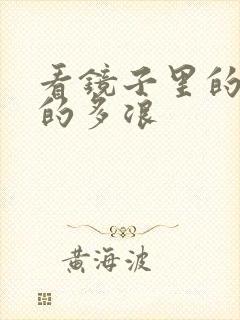 看镜子里的
的多浪
黄海波